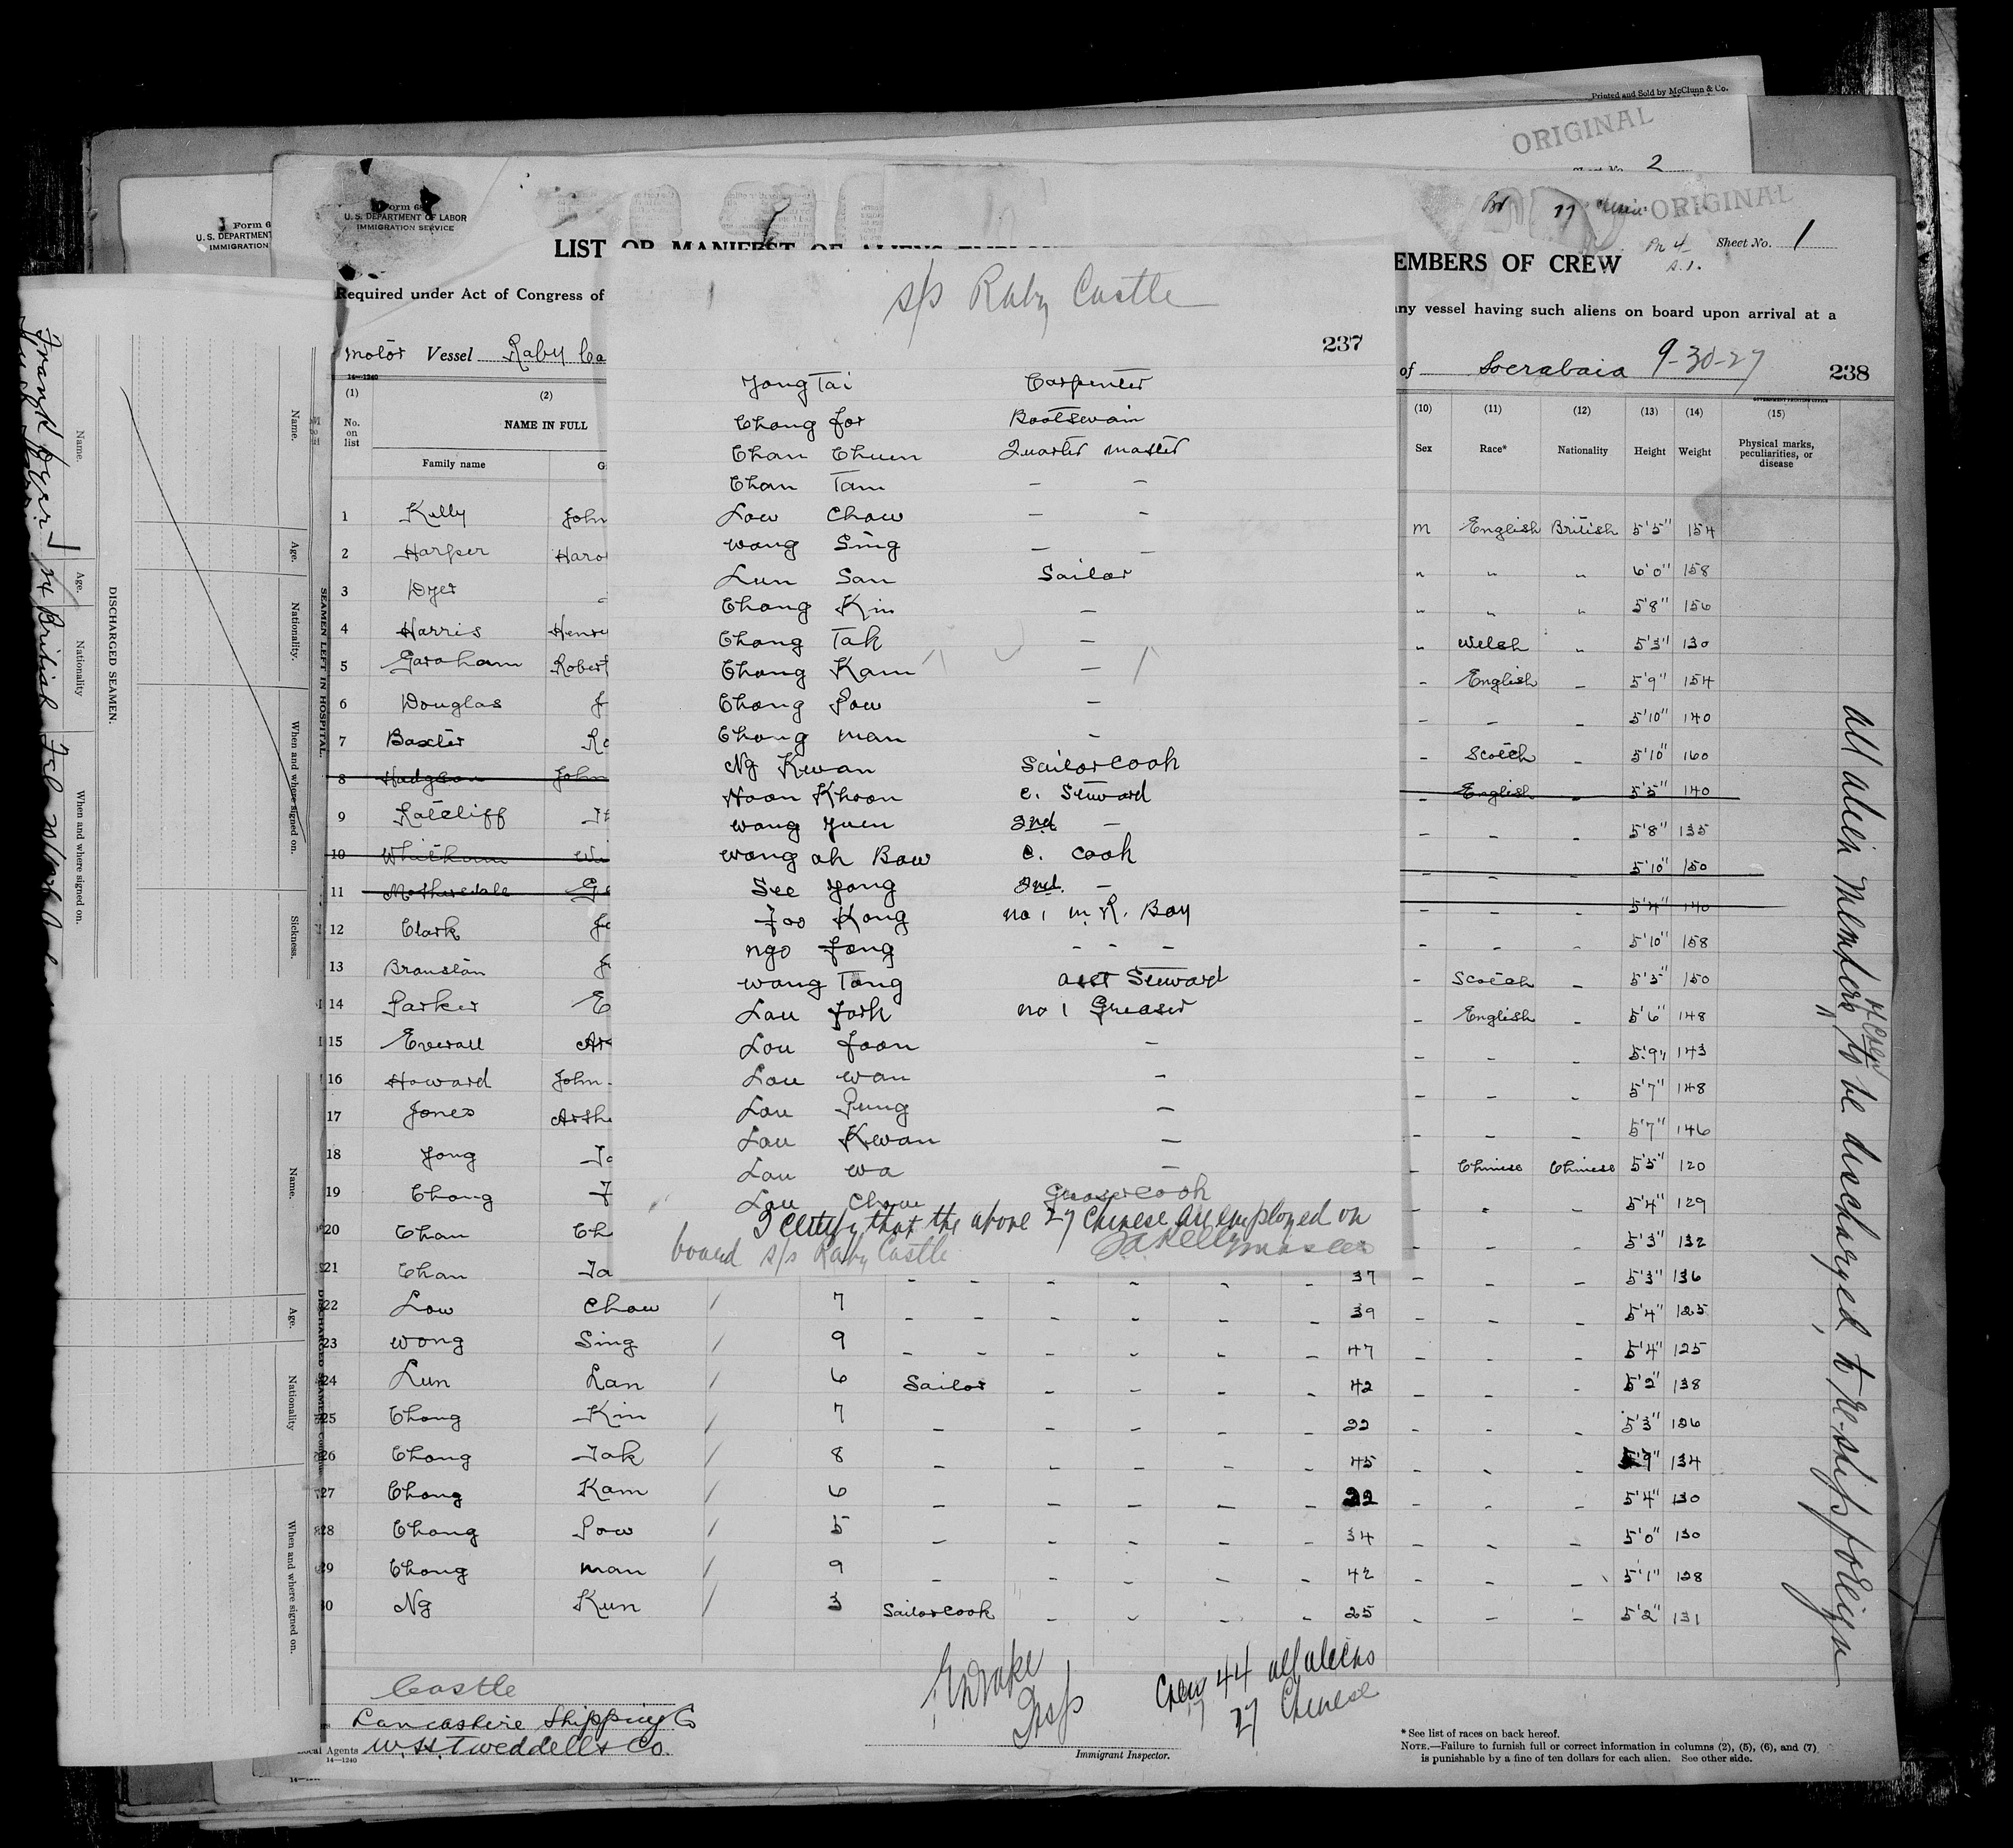 Printed and Sold by McClunn & Co.
ORIGINAL
Sheet No. 2
Form 6
U. S. DEPARTMENT
IMMIGRATION
Form 68
U. S. DEPARTMENT OF LABOR
IMMIGRATION SERVICE
ORIGINAL
Sheet No. 1
LIST OR MANIFEST OF ALIENS
EMBERS OF CREW
Required under Act of Congress of
any vessel having such aliens on board upon arrival at a
Motor Vessel Raby Ca
of Soerabaia 9-30-27
238
14—1240
s/s Raby Castle
237
Yong Tai Carpenter
Chong For Bootswain
Chan Chuen Quarter master
Chan Tam - -
Low Chow - -
Wong Sing - -
Lun San Sailor
Chong Kin -
Chong Tak -
Chong Kam -
Chong Pow -
Chong man -
Ng Kwan Sailorcook
Hoon Khoon c. Steward
Wong Yuen 2nd -
Wong ah Bow c. cook
See Yong 2nd. -
Foo Kong no 1 m. R. Boy
ngo Fong - - -
Wong Tong asst Steward
Lau Fork no 1 Greaser
Lou Foon -
Lau wan -
Lau Pung -
Lau Kwan -
Lau wa -
Lau Chow Greasercook
I certify that the above 27 Chinese are employed on
board s/s Raby Castle J.A. Kelly master
(1) (2) (10) (11) (12) (13) (14) (15)
No. on list NAME IN FULL Sex Race* Nationality Height Weight Physical marks, peculiarities, or disease
Family name
1 Kelly John M English British 5'5" 154
2 Harper Haro " " " 6'0" 158
3 Dyer " " " 5'8" 156
4 Harris Henry " Welsh " 5'3" 130
5 Garaham Robert - English - 5'9" 154
6 Douglas J - - - 5'10" 140
7 Baxter Ro - Scotch - 5'10" 160
8 Hodgson John - English - 5'5" 140
9 Ratcliff - - - 5'8" 135
10 Whitham Wi - - - 5'10" 150
11 Mothersdale Ge - - - 5'4" 140
12 Clark Jo - - - 5'10" 158
13 Branston J - Scotch - 5'3" 150
14 Parker E - English - 5'6" 148
15 Everall Ar - - - 5'9" 143
16 Howard John - - - 5'7" 148
17 Jones Arthu - - - 5'7" 146
18 Yong Ta - Chinese Chinese 5'5" 120
19 Chong F - - - 5'4" 129
20 Chan Ch - - - 5'3" 132
21 Chan Ta - - - - - - 37 - - - 5'3" 136
22 Low Chow / 7 - - - - - - 39 - - - 5'4" 125
23 Wong Sing / 9 - - - - - - 47 - - - 5'4" 125
24 Lun Lan / 6 Sailor - - - - 42 - - - 5'2" 138
25 Chong Kin / 7 - - - - - 22 - - - 5'3" 126
26 Chong Tak / 8 - - - - - 45 - - - 5'9" 134
27 Chong Kam / 6 - - - - - 22 - - - 5'4" 130
28 Chong Pow / 5 - - - - - 34 - - - 5'0" 130
29 Chong man / 9 - - - - - 42 - - - 5'1" 128
30 Ng Kun / 3 Sailorcook - - - - 25 - - - 5'2" 131
All alien members of Crew to be discharged, to re-ship foreign
Castle
Lancashire Shipping Co
Local Agents W.H. Tweddell & Co.
14—1240
Insp
Immigrant Inspector.
Crew 44 all aliens
17
27 Chinese
* See list of races on back hereof.
NOTE.—Failure to furnish full or correct information in columns (2), (5), (6), and (7)
is punishable by a fine of ten dollars for each alien. See other side.
DISCHARGED SEAMEN.
Name. Age. Nationality When and where signed on.
Frank Dyer 24 British
SEAMEN LEFT IN HOSPITAL.
Name. Age. Nationality. When and where signed on. Sickness.
DISCHARGED SEAMEN
Name. Age. Nationality When and where signed on.